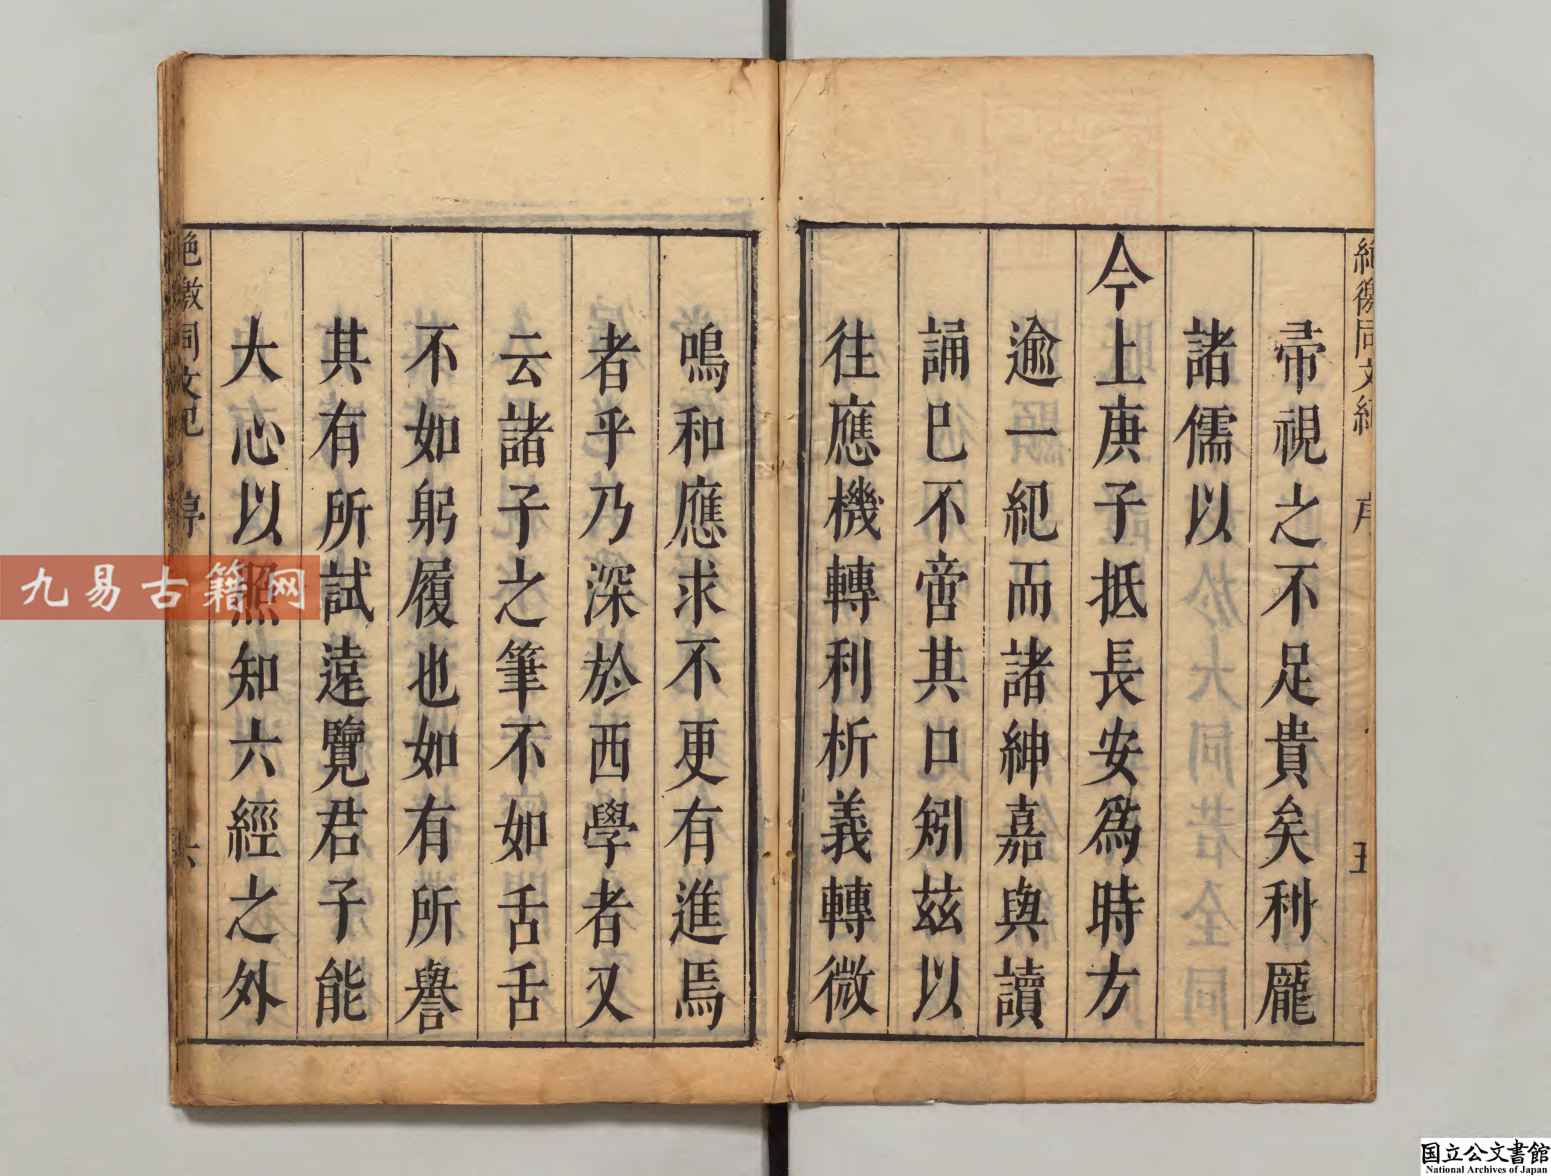 帝視之不足貴矣利龎
諸儒以
今上庚子抵長安為時方
逾一紀而諸紳嘉與讀
誦巳不啻其口矧茲以
往應機轉利析義轉微
鳴和應求不更有進焉
者乎乃深於西學者又
云諸子之筆不如舌舌
不如躬履也如有所譽
其有所試遠覽君子能
大心以照知六經之外
絕徼同文紀 序 五
絕徼同文紀 序 六
九易古籍网
国立公文書館
National Archives of Japan